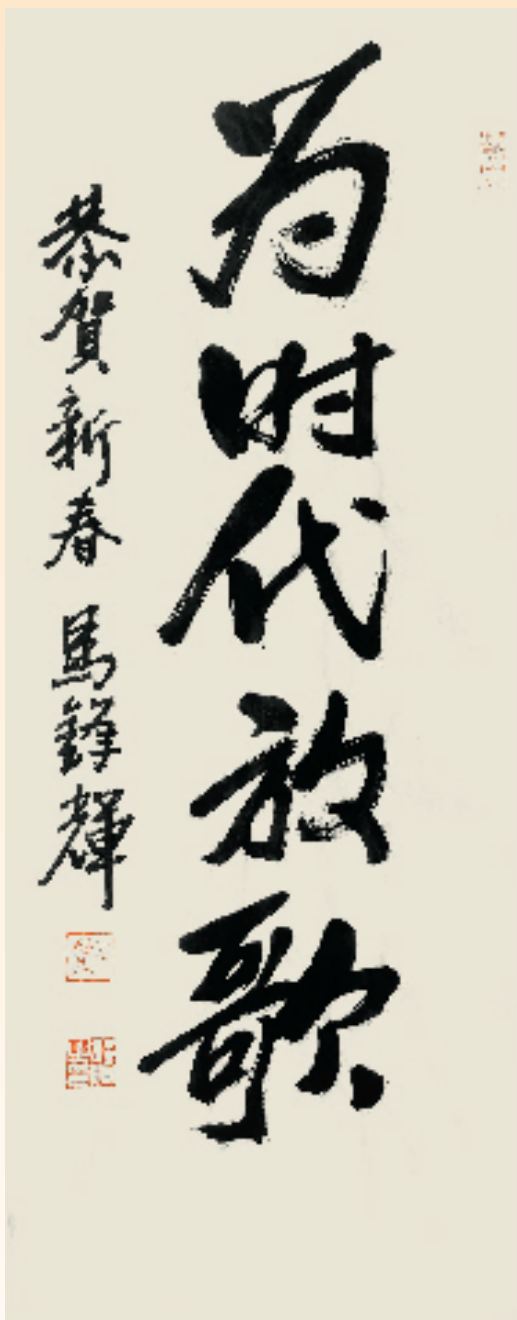 为时代放歌
恭賀新春 馬鋒輝